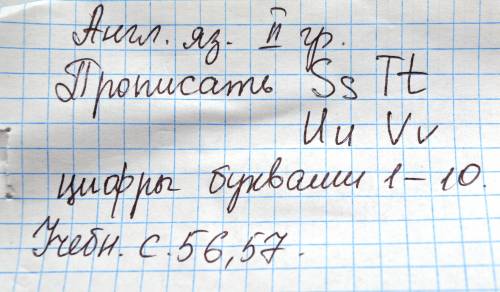 Англ. яз. II гр.
Прописать Ss Tt
Uu Vv
цифры буквами 1-10.
Учебн. с. 56,57.